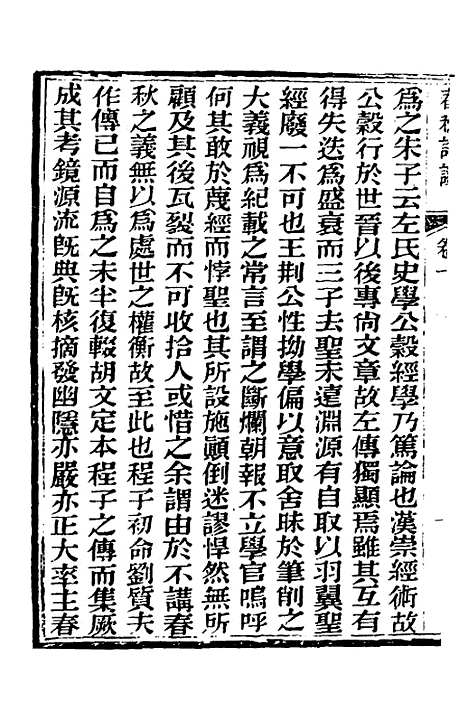 為之朱子云左氏史學公穀經學乃篤論也漢崇經術故
公穀行於世晉以後專尚文章故左傳獨顯焉雖其互有
得失迭為盛衰而三子去聖未遠淵源有自取以羽翼聖
經廢一不可也王荆公性拗學偏以意取舍昧於筆削之
大義視為紀載之常言至謂之斷爛朝報不立學官嗚呼
何其敢於蔑經而悖聖也其所設施顚倒迷謬悍然無所
顧及其後瓦裂而不可收拾人或惜之余謂由於不講春
秋之義無以為處世之權衡故至此也程子初命劉質夫
作傳已而自為之未半復輟胡文定本程子之傳而集厥
成其考鏡源流旣典旣核摘發幽隱亦嚴亦正大率主春